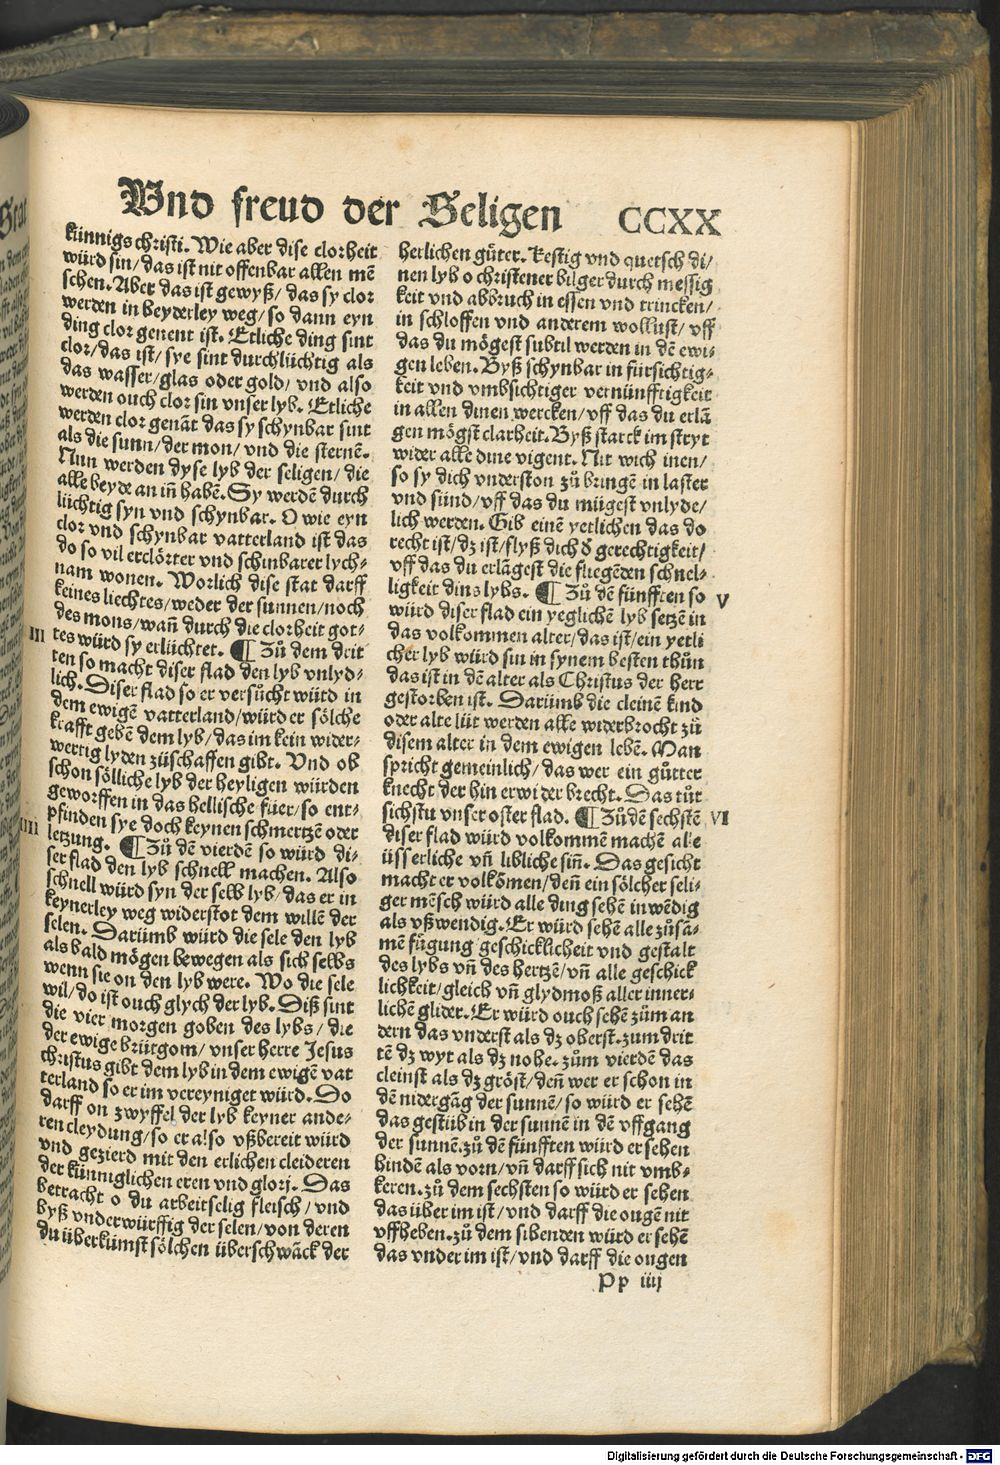 Vnd freud der Seligen CCXX
künnigs christi. Wie aber dise clorheit
würd sin/das ist nit offenbar allen mē
schen. Aber das ist gewyß/das sy clor
werden in beyderley weg/so dann eyn
ding clor genent ist. Etliche ding sint
clor/das ist/sye sint durchlüchtig als
das wasser/glas oder gold/vnd also
werden ouch clor sin vnser lyb. Etliche
werden clor genāt das sy schynbar sint
als die sunn/der mon/vnd die sternē.
Nun werden dyse lyb der seligen/die
alle beyde an in̄ habē. Sy werdē durch
lüchtig syn vnd schynbar. O wie eyn
clor vnd schynbar vatterland ist das
do so vil erclörter vnd schinbarer lych⸗
nam wonen. Worlich dise stat darff
keines liechtes/weder der sunnen/noch
des mons/wan̄ durch die clorheit got⸗
III tes würd sy erlüchtet. ¶ Zů dem drit
ten so macht diser flad den lyb vnlyd⸗
lich. Diser flad so er versücht würd in
dem ewigē vatterland/würd er sölche
krafft gebē dem lyb/das im kein wider⸗
wertig lyden züschaffen gibt. Vnd ob
schon sölliche lyb der heyligen würden
geworffen in das hellische füer/so ent⸗
pfinden sye doch keynen schmertzē oder
IIII letzung. ¶ Zů dē vierdē so würd di⸗
ser flad den lyb schnell machen. Also
schnell würd syn der selb lyb/das er in
keynerley weg widerstot dem willē der
selen. Darümb würd die sele den lyb
als bald mögen bewegen als sich selbs
wenn sie on den lyb were. Wo die sele
wil/do ist ouch glych der lyb. Diß sint
die vier morgen goben des lybs/die
der ewige brütgom/vnser herre Jesus
christus gibt dem lyb in dem ewigē vat
terland so er im vereyniger würd. Do
darff on zwyffel der lyb keyner ande⸗
ren cleydung/so er also vßbereit würd
vnd gezierd mit den erlichen cleideren
der künniglichen eren vnd glorj. Das
betracht o du arbeitselig fleisch/vnd
byß vnderwürffig der selen/von deren
du überkumst sölchen überschwāck der
herlichen gůter. Kestig vnd quetsch di/
nen lyb o christener bilger durch messig
keit vnd abbruch in essen vnd trincken/
in schloffen vnd anderem wollust/vff
das du mögest subtil werden in dē ewi⸗
gen leben. Byß schynbar in fürsichtig⸗
keit vnd vmbsichtiger vernünfftigkeit
in allen dinen wercken/vff das du erlā
gen mögst clarheit. Byß starck im stryt
wider alle dine vigent. Nit wich inen/
so sy dich vnderston zů bringē in laster
vnd sünd/vff das du mügest vnlyde/
lich werden. Gib einē yetlichen das do
recht ist/dz ist/flyß dich ð gerechtigkeit/
vff das du erlāgest die fliegēden schnel⸗
ligkeit dins lybs. ¶ Zů dē fünfften so V
würd diser flad ein yeglichē lyb setzē in
das volkommen alter/das ist/ein yetli
cher lyb würd sin in synem besten thůn
das ist in dē alter als Christus der herr
gestorben ist. Darümb die cleinē kind
oder alte lüt werden alle widerbrocht zů
disem alter in dem ewigen lebē. Man
spricht gemeinlich/das wer ein gůtter
knecht der hin er wider brecht. Das tůt
sichstu vnser oster flad. ¶ Zůdē sechstē VI
diser flad würd volkommē machē alle
üsserliche vn̄ libliche sin̄. Das gesicht
macht er volkōmen/den̄ ein sölcher seli⸗
ger mēsch würd alle ding sehē inwēdig
als vßwendig. Er würd sehē alle zůsa⸗
mē fůgung geschicklicheit vnd gestalt
des lybs vn̄ des hertzē/vn̄ alle geschick
lichkeit/gleich vn̄ glydmoß aller inner⸗
lichē glider. Er würd ouch sehē zům an
dern das vnderst als dz oberst. zum drit
tē dz wyt als dz nohe. zům vierdē das
cleinst als dz gröst/den̄ wer er schon in
dē nidergāg der sunnē/so würd er sehē
das gestüb in der sunnē in dē vffgang
der sunnē. zů dē fünfften würd er sehen
hindē als vorn/vn̄ darff sich nit vmb⸗
keren. zů dem sechsten so würd er sehen
das über im ist/vnd darff die ougē nit
vffheben. zů dem sibenden würd er sehē
das vnder im ist/vnd darff die ougen
Pp iiij
Digitalisierung gefördert durch die Deutsche Forschungsgemeinschaft - DFG